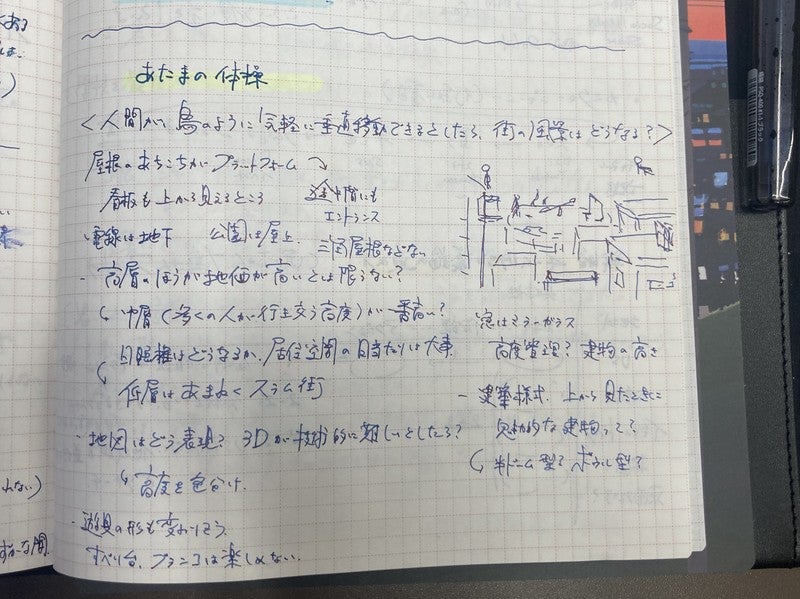 あたまの体操
<人間が、鳥のように気軽に垂直移動できるとしたら、街の風景はどうなる?>
屋根のあちこちがプラットフォーム
看板も上から見えるところ
途中階にも
エントランス
・電線は地下 公園は屋上、三角屋根などない
- 高層のほうが地価が高いとは限らない?
↳ 中層(多くの人が行き交う高度)が一番高い?
日照権はどうなるか、居住空間の日当たりは大事
↳ 低層はあまねくスラム街
- 地図はどう表現? 3Dが技術的に難しいとしたら?
↳ 高度を色分け
- 遊具の形も変わりそう
すべり台、ブランコは楽しめない
窓はミラーガラス
高度管理? 建物の高さ
- 建築様式、上から見たときに
魅力的な建物って?
↳ 半ドーム型? ボウル型?